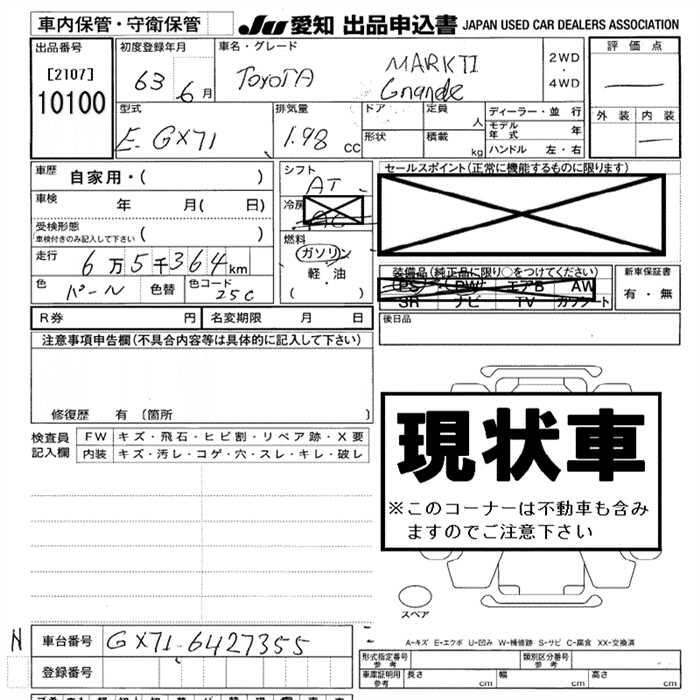 車内保管・守衛保管
JU 愛知 出品申込書 JAPAN USED CAR DEALERS ASSOCIATION
出品番号 [2107] 10100
初度登録年月 63 6月
車名・グレード TOYOTA MARKII Grande
2WD・4WD
評価点
外装 内装
型式 E-GX71
排気量 1.98 cc
ドア・ 定員 人
形状 積載 kg
ディーラー・並行
モデル年式 年
ハンドル 左・右
車歴 自家用・( )
車検 年 月( 日)
受検形態 (車検付きのみ記入して下さい)
走行 6万5千364km
色 パール 色替 色コード 25C
シフト AT
冷房 AC
燃料 ガソリン 軽・油 ( )
セールスポイント(正常に機能するものに限ります)
装備品(純正品に限り○をつけてください)
PS PW エアB AW
SR ナビ TV カワシート
新車保証書 有・無
R券 円 名変期限 月 日
後日品
注意事項申告欄(不具合内容等は具体的に記入して下さい)
修復歴 有 〔箇所 〕
検査員記入欄
FW キズ・飛石・ヒビ割・リペア跡・X要
内装 キズ・汚レ・コゲ・穴・スレ・キレ・破レ
現状車
※このコーナーは不動車も含み
ますのでご注意下さい
スペア
A-キズ E-エクボ U-凹み W-補修跡 S-サビ C-腐食 XX-交換済
N 車台番号 GX71-6427355
登録番号
形式指定番号 参考
類別区分番号 参考
車庫証明用 参考 長さ cm 幅 cm 高さ cm